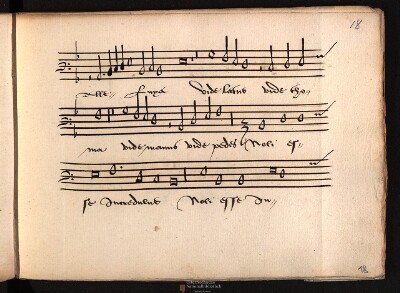 18
Alle- luya vide latus vide tho-
ma vide manus vide pedes Noli es-
se Incredulus Noli esse In-
18